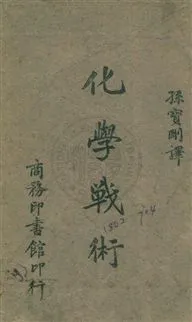 孫寶剛譯
化學戰術
商務印書館印行
1802